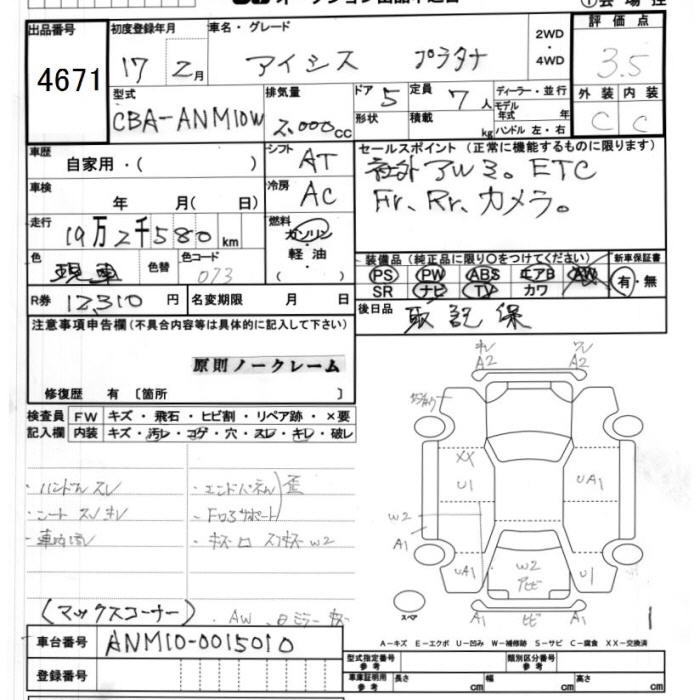 出品番号 4671
初度登録年月 17 2月
車名・グレード アイシス プラタナ
2WD・4WD
評価点 3.5
外装 内装
C C
型式 CBA-ANM10W
排気量 2.000cc
ドア 5 形状
定員 7人 積載 kg
ディーラー・並行
モデル年式 年
ハンドル 左・右
車歴 自家用・( )
シフト AT
セールスポイント(正常に機能するものに限ります)
社外アルミ。ETC
Fr、Rr、カメラ。
車検 年 月( 日)
冷房 AC
走行 19万2千580km
燃料 ガソリン・軽油・( )
色 現車 色替 色コード 073
装備品(純正品に限り○をつけてください) 新車保証書
PS PW ABS エアB AW 有・無
SR ナビ TV カワ
R券 12,310円 名変期限 月 日
後日品 取記保
注意事項申告欄(不具合内容等は具体的に記入して下さい)
原則ノークレーム
修復歴 有〔箇所 〕
検査員記入欄 FW キズ・飛石・ヒビ割・リペア跡・×要
内装 キズ・汚レ・コゲ・穴・スレ・キレ・破レ
・ハンドルスレ
・シートスレキレ
・エンドパネル 歪
・Fロアサポート
(マックスコーナー)
車台番号 ANM10-0015010
登録番号
A2 A2
XX
U1 UA1
W2
A1
UA1 W2 U1
A1 ヒビ A1
スペア
1
A-キズ E-エクボ U-凹み W-補修跡 S-サビ C-腐食 XX-交換済
型式指定番号参考 類別区分番号参考
車庫証明用参考 長さ cm 幅 cm 高さ cm